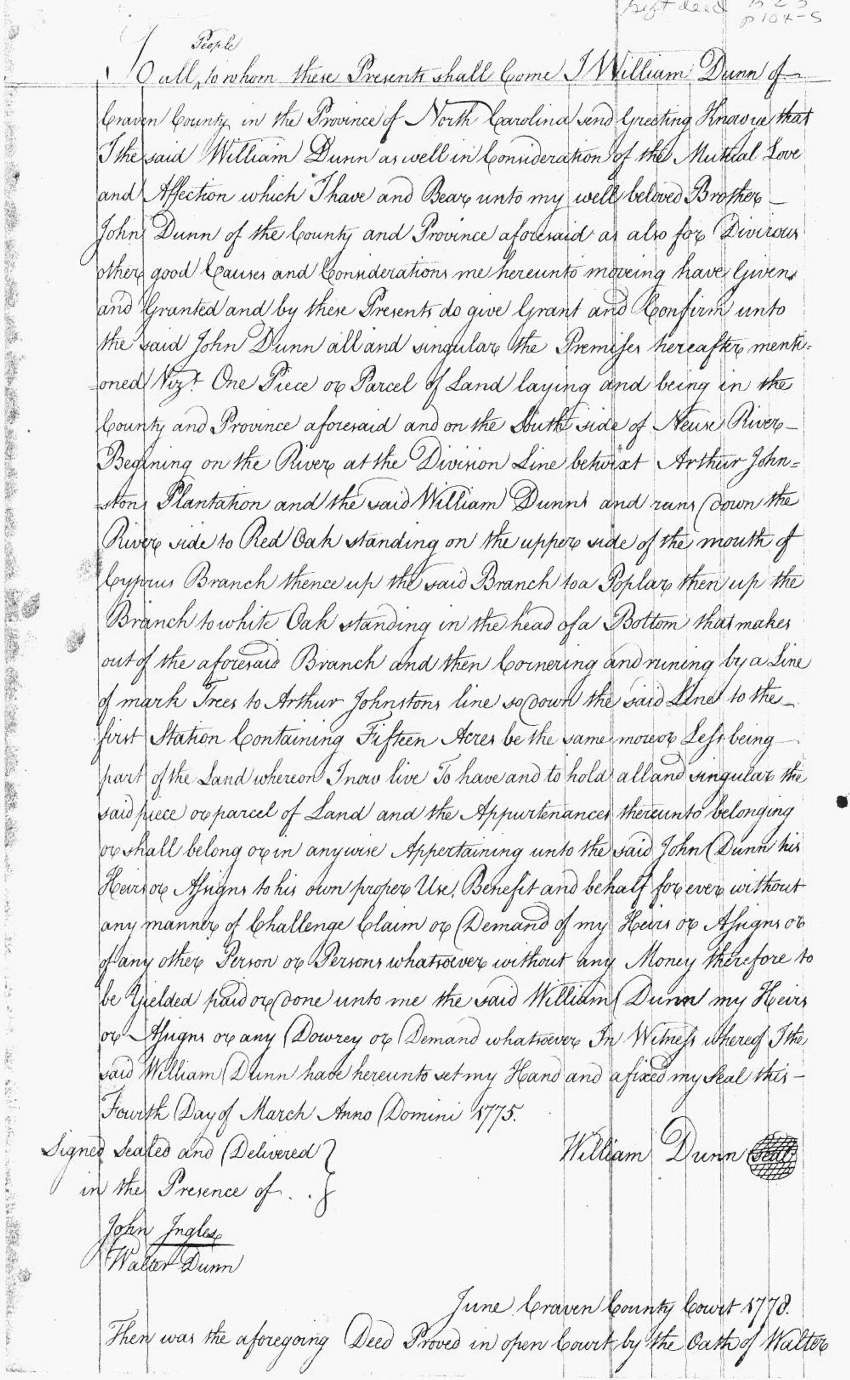 Gift deed B 23
p 104-5
People
To all, to whom these Presents shall Come I William Dunn of
Craven County in the Province of North Carolina send Greeting Know ye that
I the said William Dunn as well in Consideration of the Mutual Love
and Affection which I have and Bear unto my well beloved Brother
John Dunn of the County and Province aforesaid as also for Divirous
other good Causes and Considerations me hereunto moveing have Given
and Granted and by these Presents do give Grant and Confirm unto
the said John Dunn all and singular the Premises hereafter menti-
=oned Vizt. One Piece or Parcel of Land laying and being in the
County and Province aforesaid and on the South side of Neuse River
Begining on the River at the Division Line betwixt Arthur John=
=stons Plantation and the said William Dunns and runs down the
River side to Red Oak standing on the upper side of the mouth of
Cyprus Branch thence up the said Branch to a Poplar then up the
Branch to white Oak standing in the head of a Bottom that makes
out of the aforesaid Branch and then Cornering and runing by a Line
of mark Trees to Arthur Johnstons line so down the said Line to the
first Station Containing Fifteen Acres be the same more or Less being
part of the Land whereon I now live To have and to hold all and singular the
said piece or parcel of Land and the Appurtenances thereunto belonging
or shall belong or in anywise Appertaining unto the said John Dunn his
Heirs or Assigns to his own proper Use, Benefit and behalf for ever without
any manner of Challenge Claim or Demand of my Heirs or Assigns or
of any other Person or Persons whatsoever without any Money therefore to
be Yielded paid or done unto me the said William Dunn my Heirs
or Assigns or any Dowrey or Demand whatsoever In Witness whereof I the
said William Dunn have hereunto set my Hand and afixed my Seal this
Fourth Day of March Anno Domini 1775.
Signed Sealed and Delivered } William Dunn Seal
in the Presence of . . }
John Ingles
Walter Dunn
June Craven County Court 1778.
Then was the aforegoing Deed Proved in open Court by the Oath of Walter